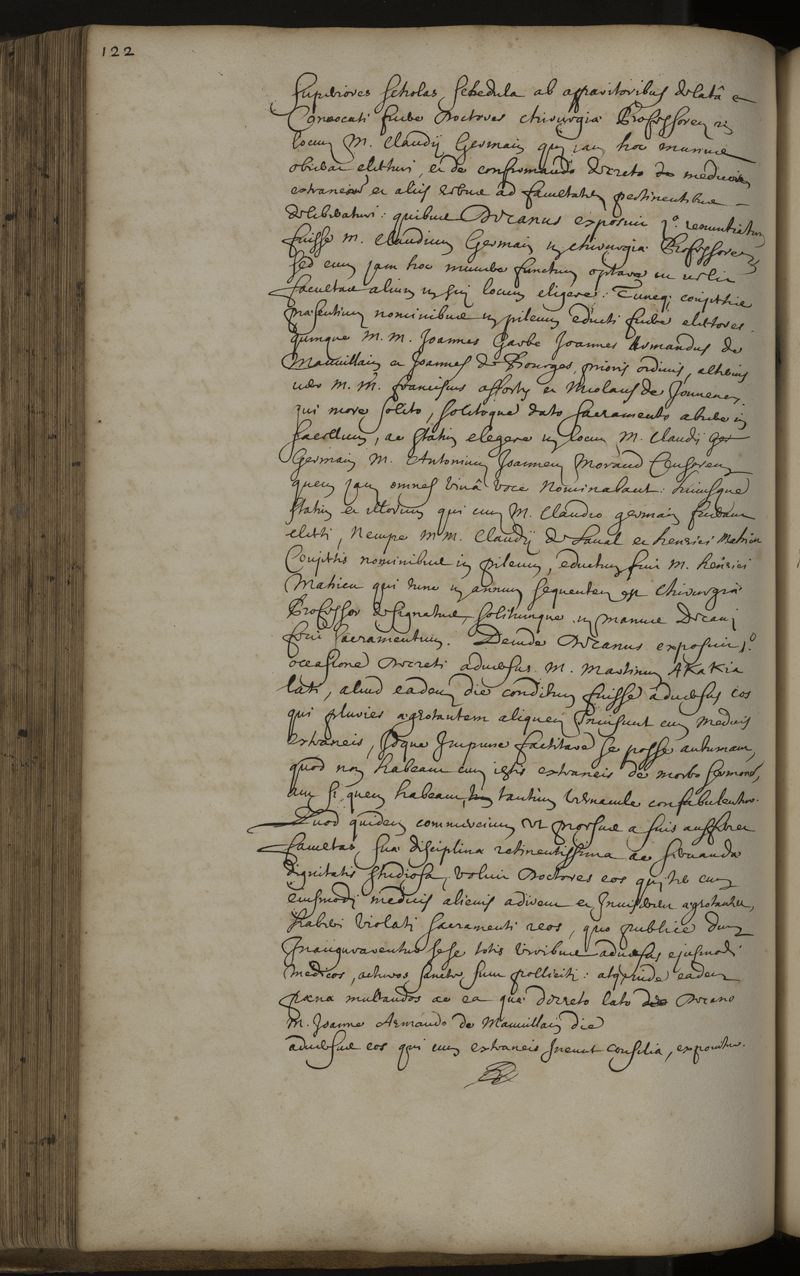 122
superiores scholas schedula ab apparitoribus delatâ
Convocati fuere Doctores chirurgiæ Professorem in
locum M. Claudij Germain qui jam hoc munere
obierat electuri, et de confirmando decreto de medicis
extraneis et aliis rebus ad facultatem pertinentibus
deliberaturi: quibus Decanus exposuit 1º. renuntiatum
fuisse M. Claudium Germain in chirurgiæ Professorem
sed eum jam hoc munere functum optare ut
facultas alium in sui locum eligeret: Tuncq; conjectis
præsentium nominibus in pileum educti fuere electores
quinque M. M. Joannes Garbe Joannes Armandus de
Mauvillain et Joannes de Bourges, prioris ordinis, alterius
vero M. M. franciscus afforty et Nicolaus de Jouvenen
qui more solito, solitoque dato sacramento abiere in
sacellum, ac statim elegere in locum M. Claudij
Germain M. Antonium Joannem Morand Censorem
quem jam omnes vivâ voce nominabant:
statim et illorum qui cum M. Claudio germain fuerant
electi, Nempe M M. Claudij de Laual et henrici Mahieu
Conjectis nominibus in pileum, eductus fuit M. henrici
Mahieu qui tunc in annum sequentem est chirurgiæ
Professor designatus, solitumque in manus Decani
sacramentum. Deinde Decanus exposuit 1.º
occasione Decreti adversus M. Martinum AKaKia
lati, aliud eadem die conditum fuisse adversus eos
qui pluries ægrotantem aliquem invisunt cum medicis
extraneis, idque Impune factitare se posse autumant,
quod non habeant cum istis extraneis de morbo sermonem,
aut si quem habeant, tantum vernacule confabulentur.
Quod quidem commercium ut prorsus a suis aufferret
facultas, suæ disciplinæ retinentissima ac servandæ
dignitatis studiosa, voluit Doctores eos qui cum
eiusmodi medicis alienis adirent et Inviserent ægrotantes,
haberi violati sacramenti reos, quo publice dum
Inaugurarentur sese totis viribus adversus ejusmodi
medicos, acturos sancte sunt polliciti: atque inde eadem
pæna mulctandos ac ea quæ decreto lato Decano
M. Joanne Armando de Mauvillain die
adversus eos qui cum extraneis Ineunt consilia, exponitur.